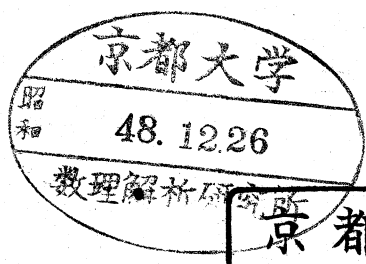 京都大学
昭和
48.12.26
数理解析研究所
京都